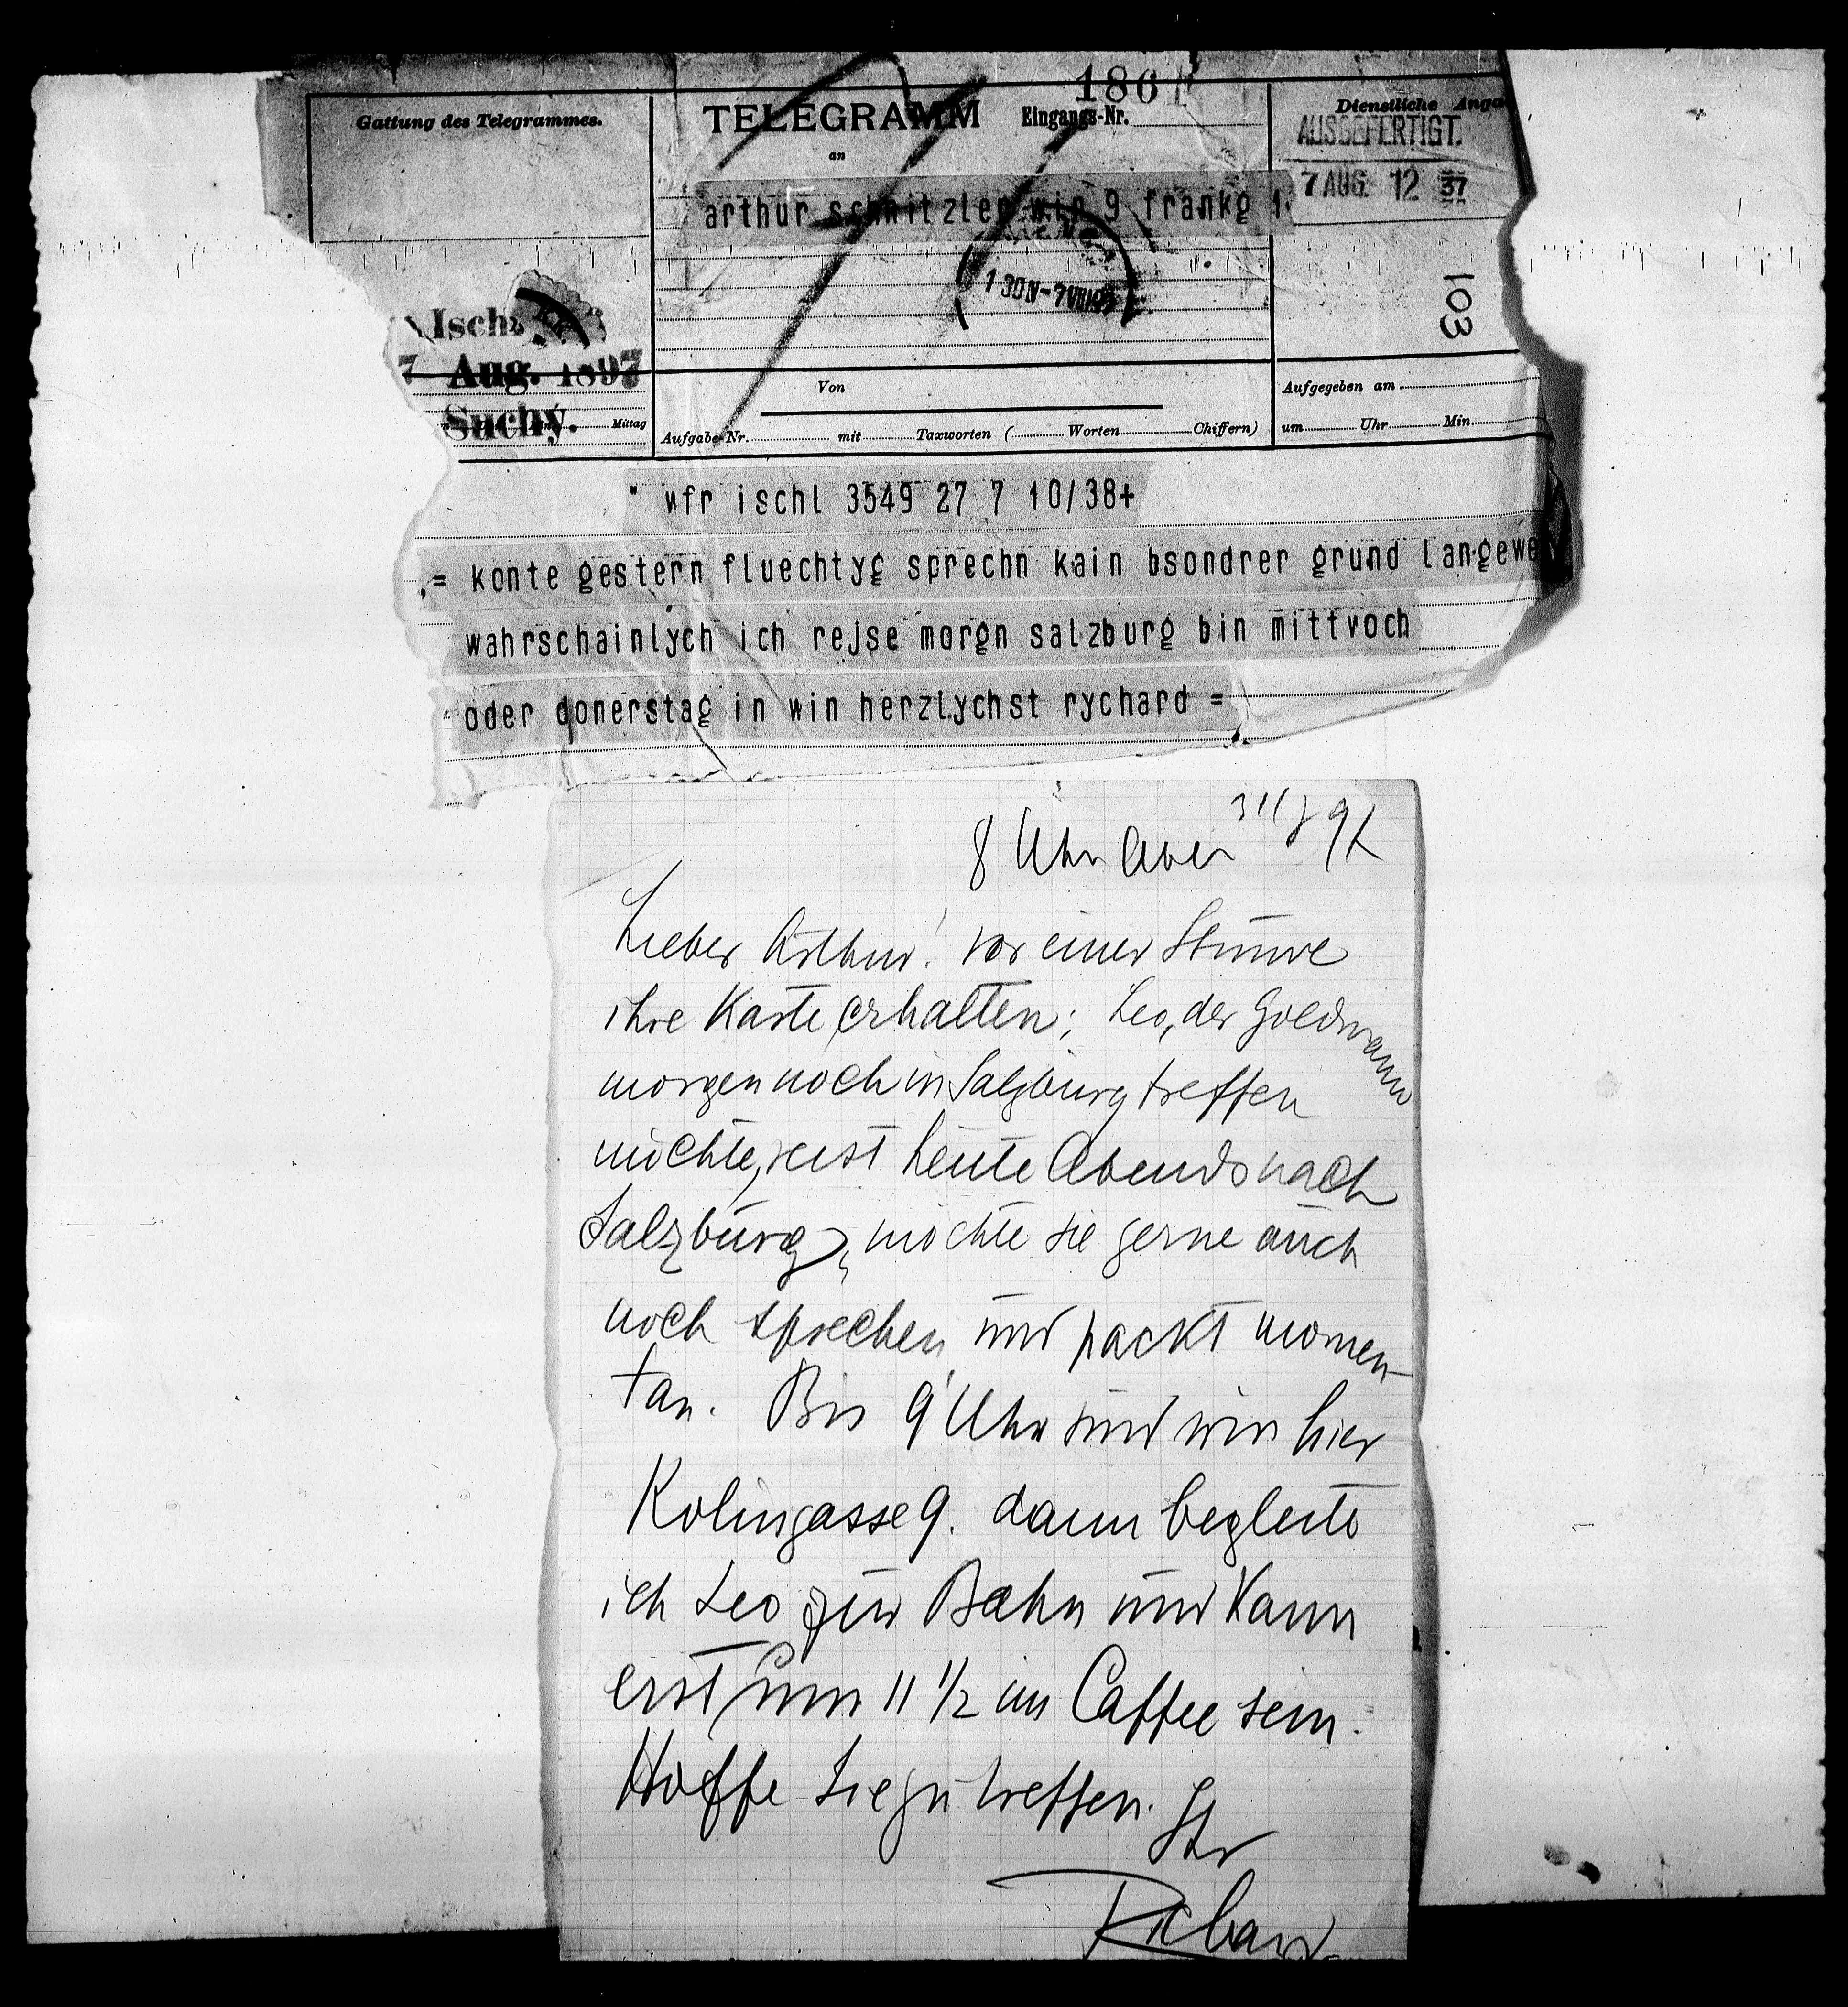 Gattung des Telegrammes.
TELEGRAMM
an
186
Eingangs-Nr.
Dienstliche Anga
AUSGEFERTIGT.
7 AUG. 12 37
arthur schnitzler win 9 frankg 1
1 30N-7 VIII 97
103
Isch
7 Aug. 1897
Suchy.
Mittag
Von
Aufgabe-Nr. mit Taxworten ( Worten Chiffern)
Aufgegeben am
um Uhr Min.
" wfr ischl 3549 27 7 10/38+
= konte gestern fluechtyg sprechn kain bsondrer grund langewe
wahrschainlych ich rejse morgn salzburg bin mittvoch
oder donerstag in win herzlychst rychard =
8 Uhr Aben 31/8 97
Lieber Arthur! vor einer Stunde
ihre Karte erhalten; Leo, der Goldmann
morgen noch in Salzburg treffen
möchte, reist heute Abends nach
Salzburg, möchte sie gerne auch
noch sprechen und packt momen-
tan. Bis 9 Uhr sind wir hier
Kolingasse 9. dann begleite
ich Leo zur Bahn und kann
erst um 11 1/2 im Caffee sein.
Hoffe Sie zu treffen. Ihr
Richard